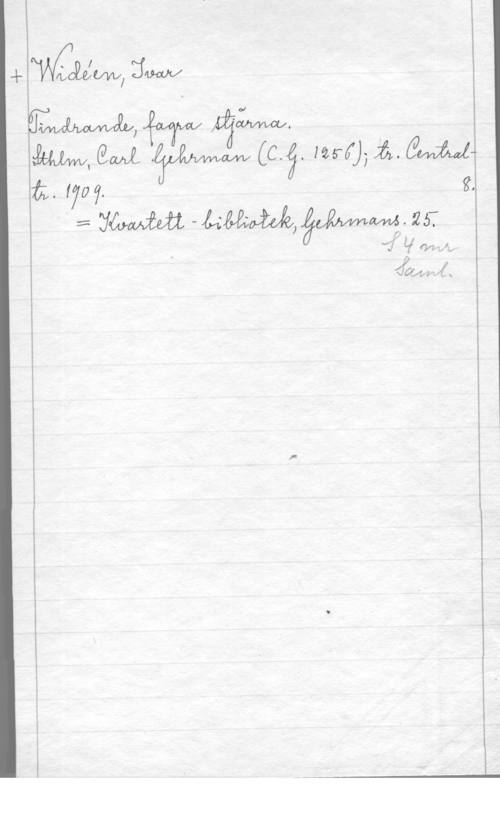 + Widéen, Ivar
Tindrande, fagra stjärna.
Sthlm, Carl Gehrman (C.G. 1256); tr. Central-
tr. 1909. 8.
= Kvartett-bibliotek, Gehrmans. 25.
f 4 mr
Saml.